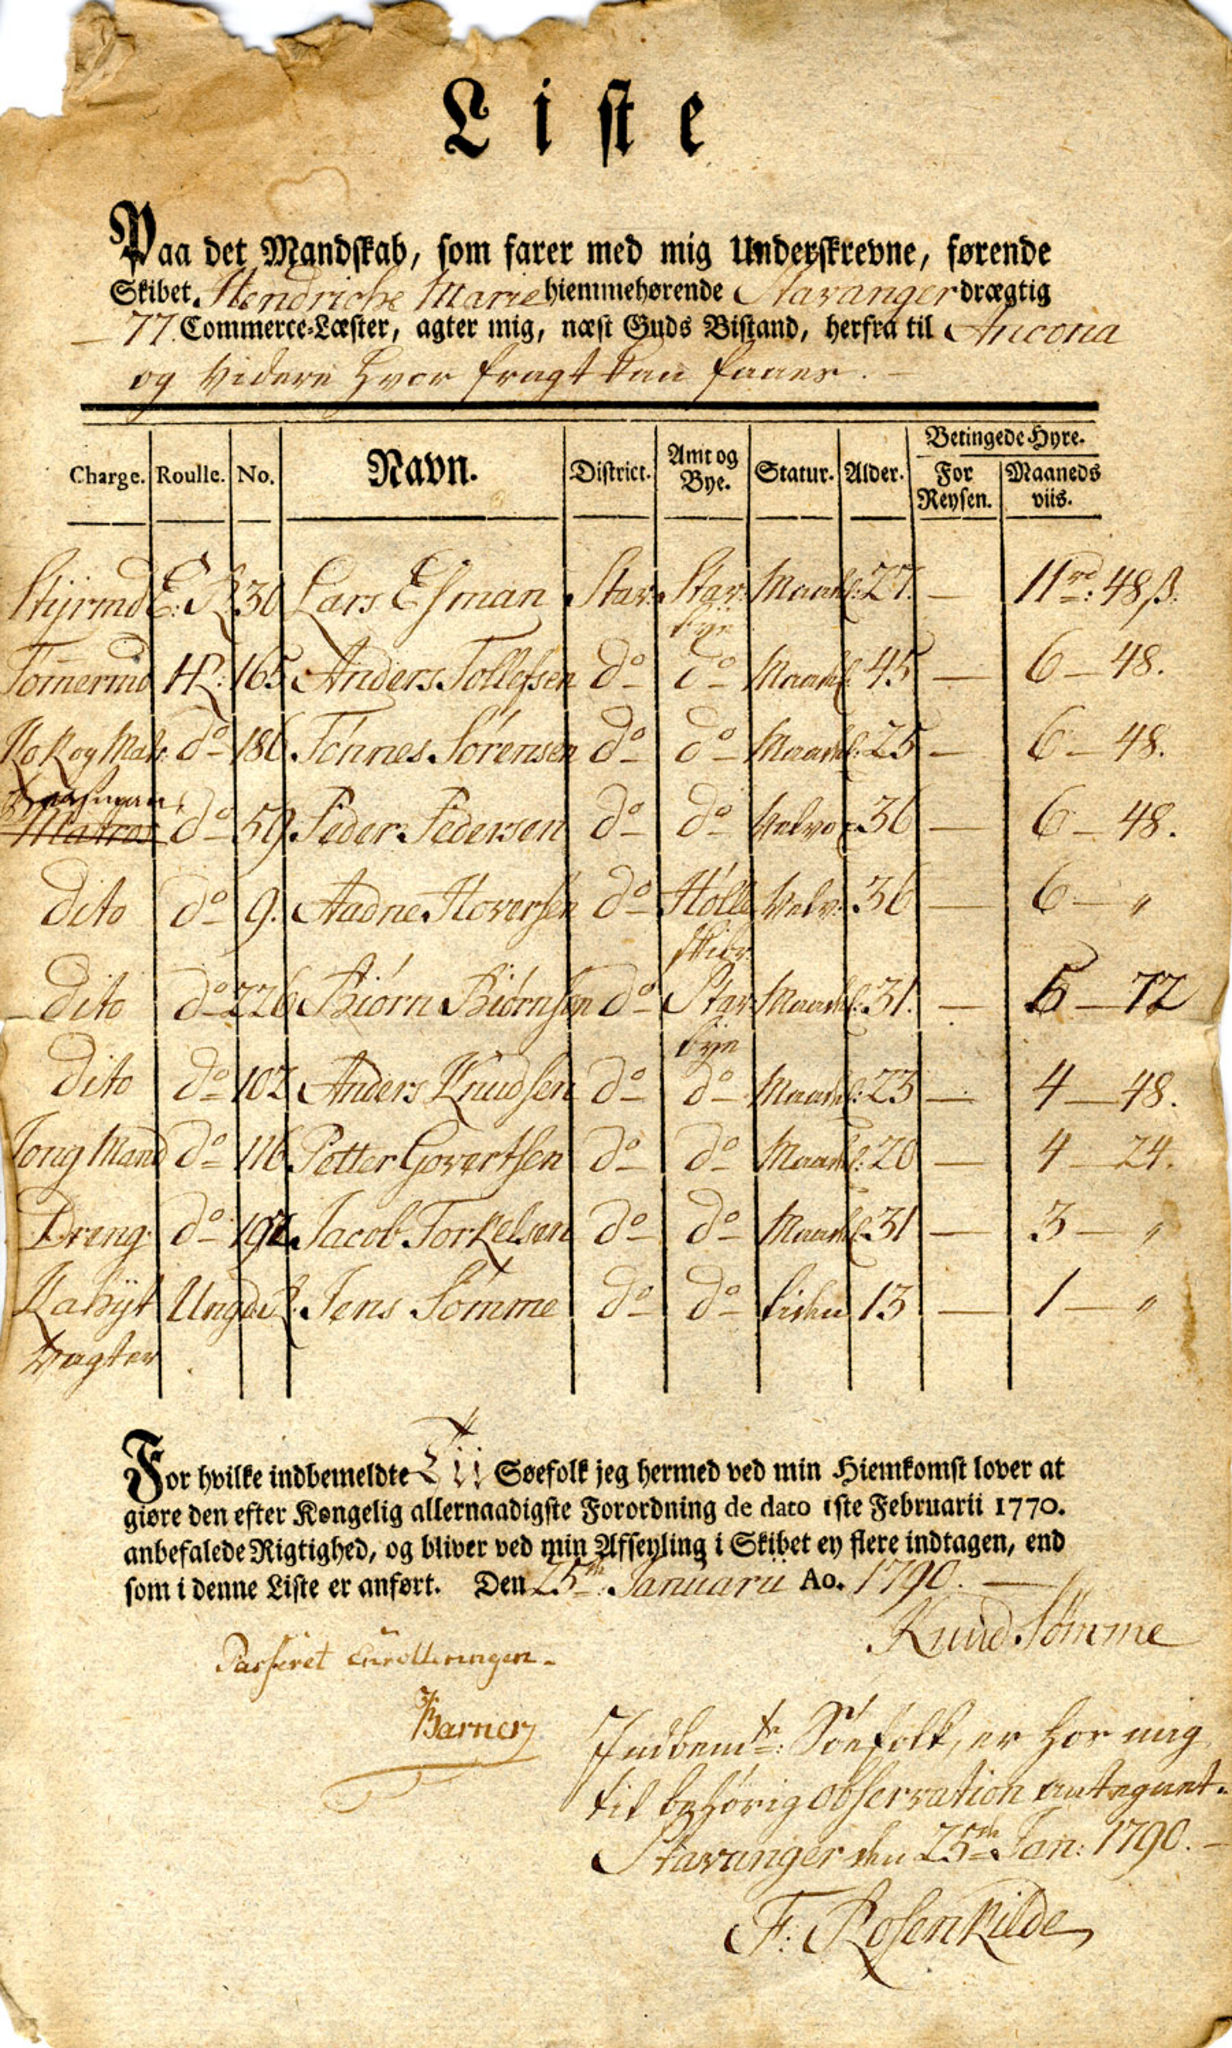 Liste
Paa det Mandskab, som farer med mig Underskrevne, førende
Skibet Hendriche Marie hiemmehørende Stavanger drægtig
77 Commerce-Læster, agter mig, næst Guds Bistand, herfra til Ancona
og Videre hvor fragt kan faaes.
Betingede Hyre.
Charge. Roulle. No. Navn. District. Amt og Bye. Statur. Alder. For Reysen. Maaneds viis.
Styrmd E: R 30 Lars Esman Stav. Stav: bye Maadel: 27. — 11 rd: 48 ß.
Tømermd H: 165 Anders Tollefsen do do Maadel: 45 — 6 — 48.
Kok og Matr: do 186 Tønnes Sørensen do do Maadel: 25 — 6 — 48.
Matros do 59 Peder Pedersen do do Velvox 36 — 6 — 48.
dito do 9. Aadne Hoversen do Hølle Velv: 36 — 6 — "
dito do 226 Biørn Biørnsen do Stav bye Maadel: 31. — 5 — 72
dito do 102 Anders Knudsen do do Maadel: 23 — 4 — 48.
Jong Mand do 116 Petter Govertsen do do Maadel: 20 — 4 — 24.
Dreng do Jacob Torkelsen do do Maadel: 31 — 3 — "
Kahyt Ungd. R. Jens Sømme do do liden 13 — 1 — "
Vagter
For hvilke indbemeldte Tii Søefolk jeg hermed ved min Hiemkomst lover at
giøre den efter Kongelig allernaadigste Forordning de dato 1ste Februarii 1770.
anbefalede Rigtighed, og bliver ved min Afseyling i Skibet ey flere indtagen, end
som i denne Liste er anført. Den 25th Januarii Ao. 1790. —
Knud Sømme
Passeret Enrolleringen —
Barner
Indbemte: Søefolk, er hos mig
til behørig observation antegnet.
Stavanger den 25th Jan: 1790. —
F: Rosenkilde